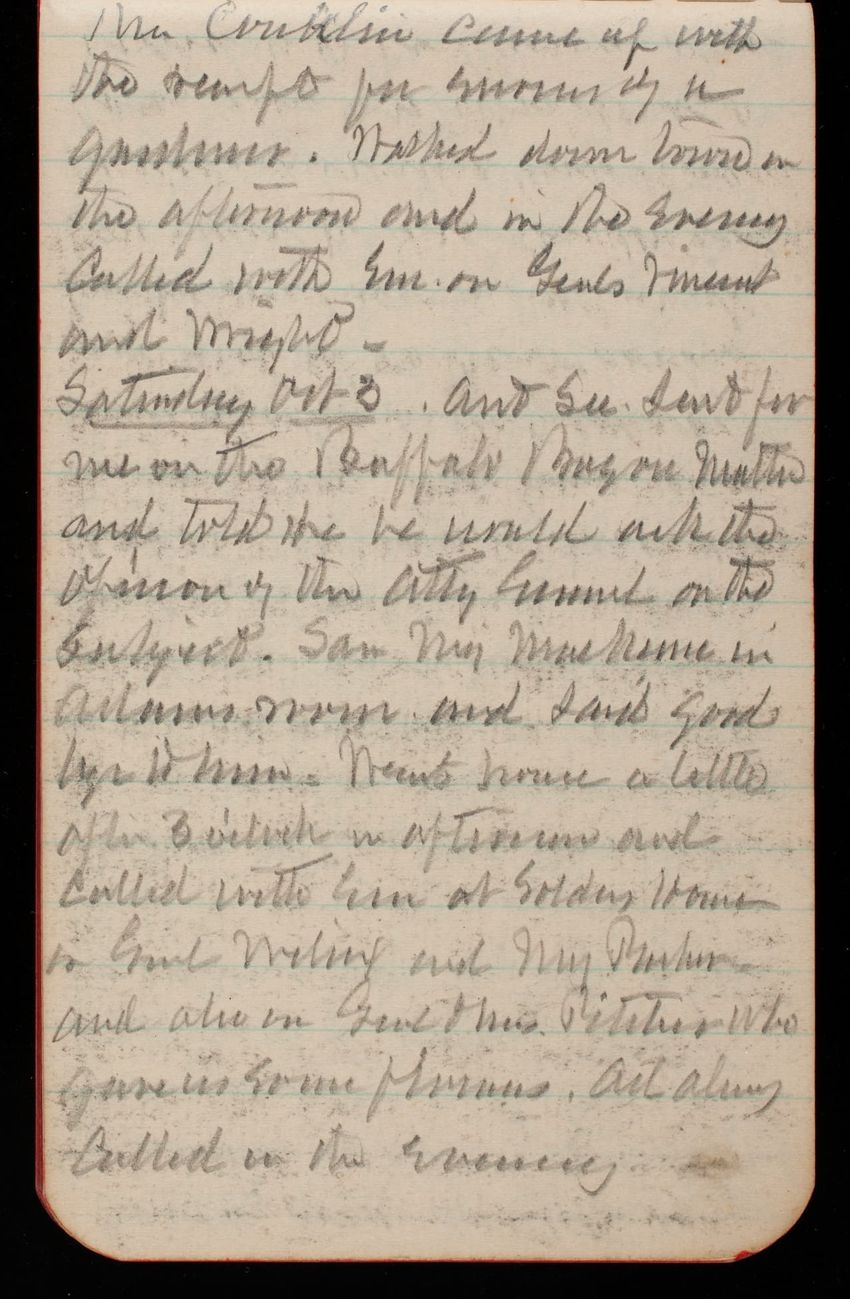 Mr Conklin came up with
the receipt for
Walked down town in
the afternoon and in the evening
Called with Em. on Genls Vincent
and Wright -
Saturday Oct 3. And Sec. sent for
me on the Buffalo Bayou Matter
and told me he would ask the
opinion of the Atty General on the
Subject. Saw Maj MacKenzie in
Adams room and said good
bye to him - Went home a little
after 3 o'clock in afternoon and
Called with Em at Soldiers Home
on Genl and Maj Parker -
and also on Genl & Mrs. Pitcher who
gave us some flowers.
Called in the evening